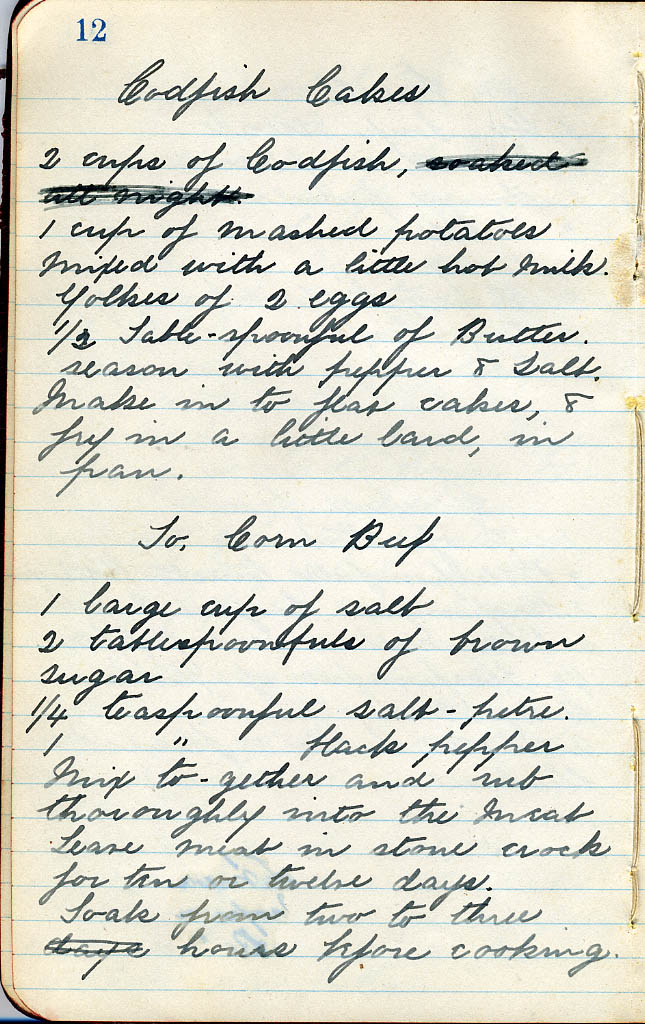 12
Codfish Cakes
2 cups of Codfish, soaked
all night.
1 cup of mashed potatoes
mixed with a little hot milk.
Yolkes of 2 eggs
1/2 Table-spoonful of Butter.
season with pepper & Salt.
Make in to flat cakes, &
fry in a little lard, in
pan.
To, Corn Beef
1 large cup of salt
2 tablespoonfuls of brown
sugar
1/4 teaspoonful salt-petre.
1 " black pepper
Mix to-gether and rub
thoroughly into the meat
Leave meat in stone crock
for ten or twelve days.
Soak from two to three
days hours before cooking.